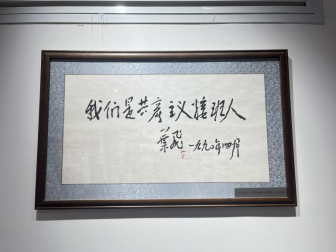 我们是共产主义接班人
叶飞
一九九〇年四月